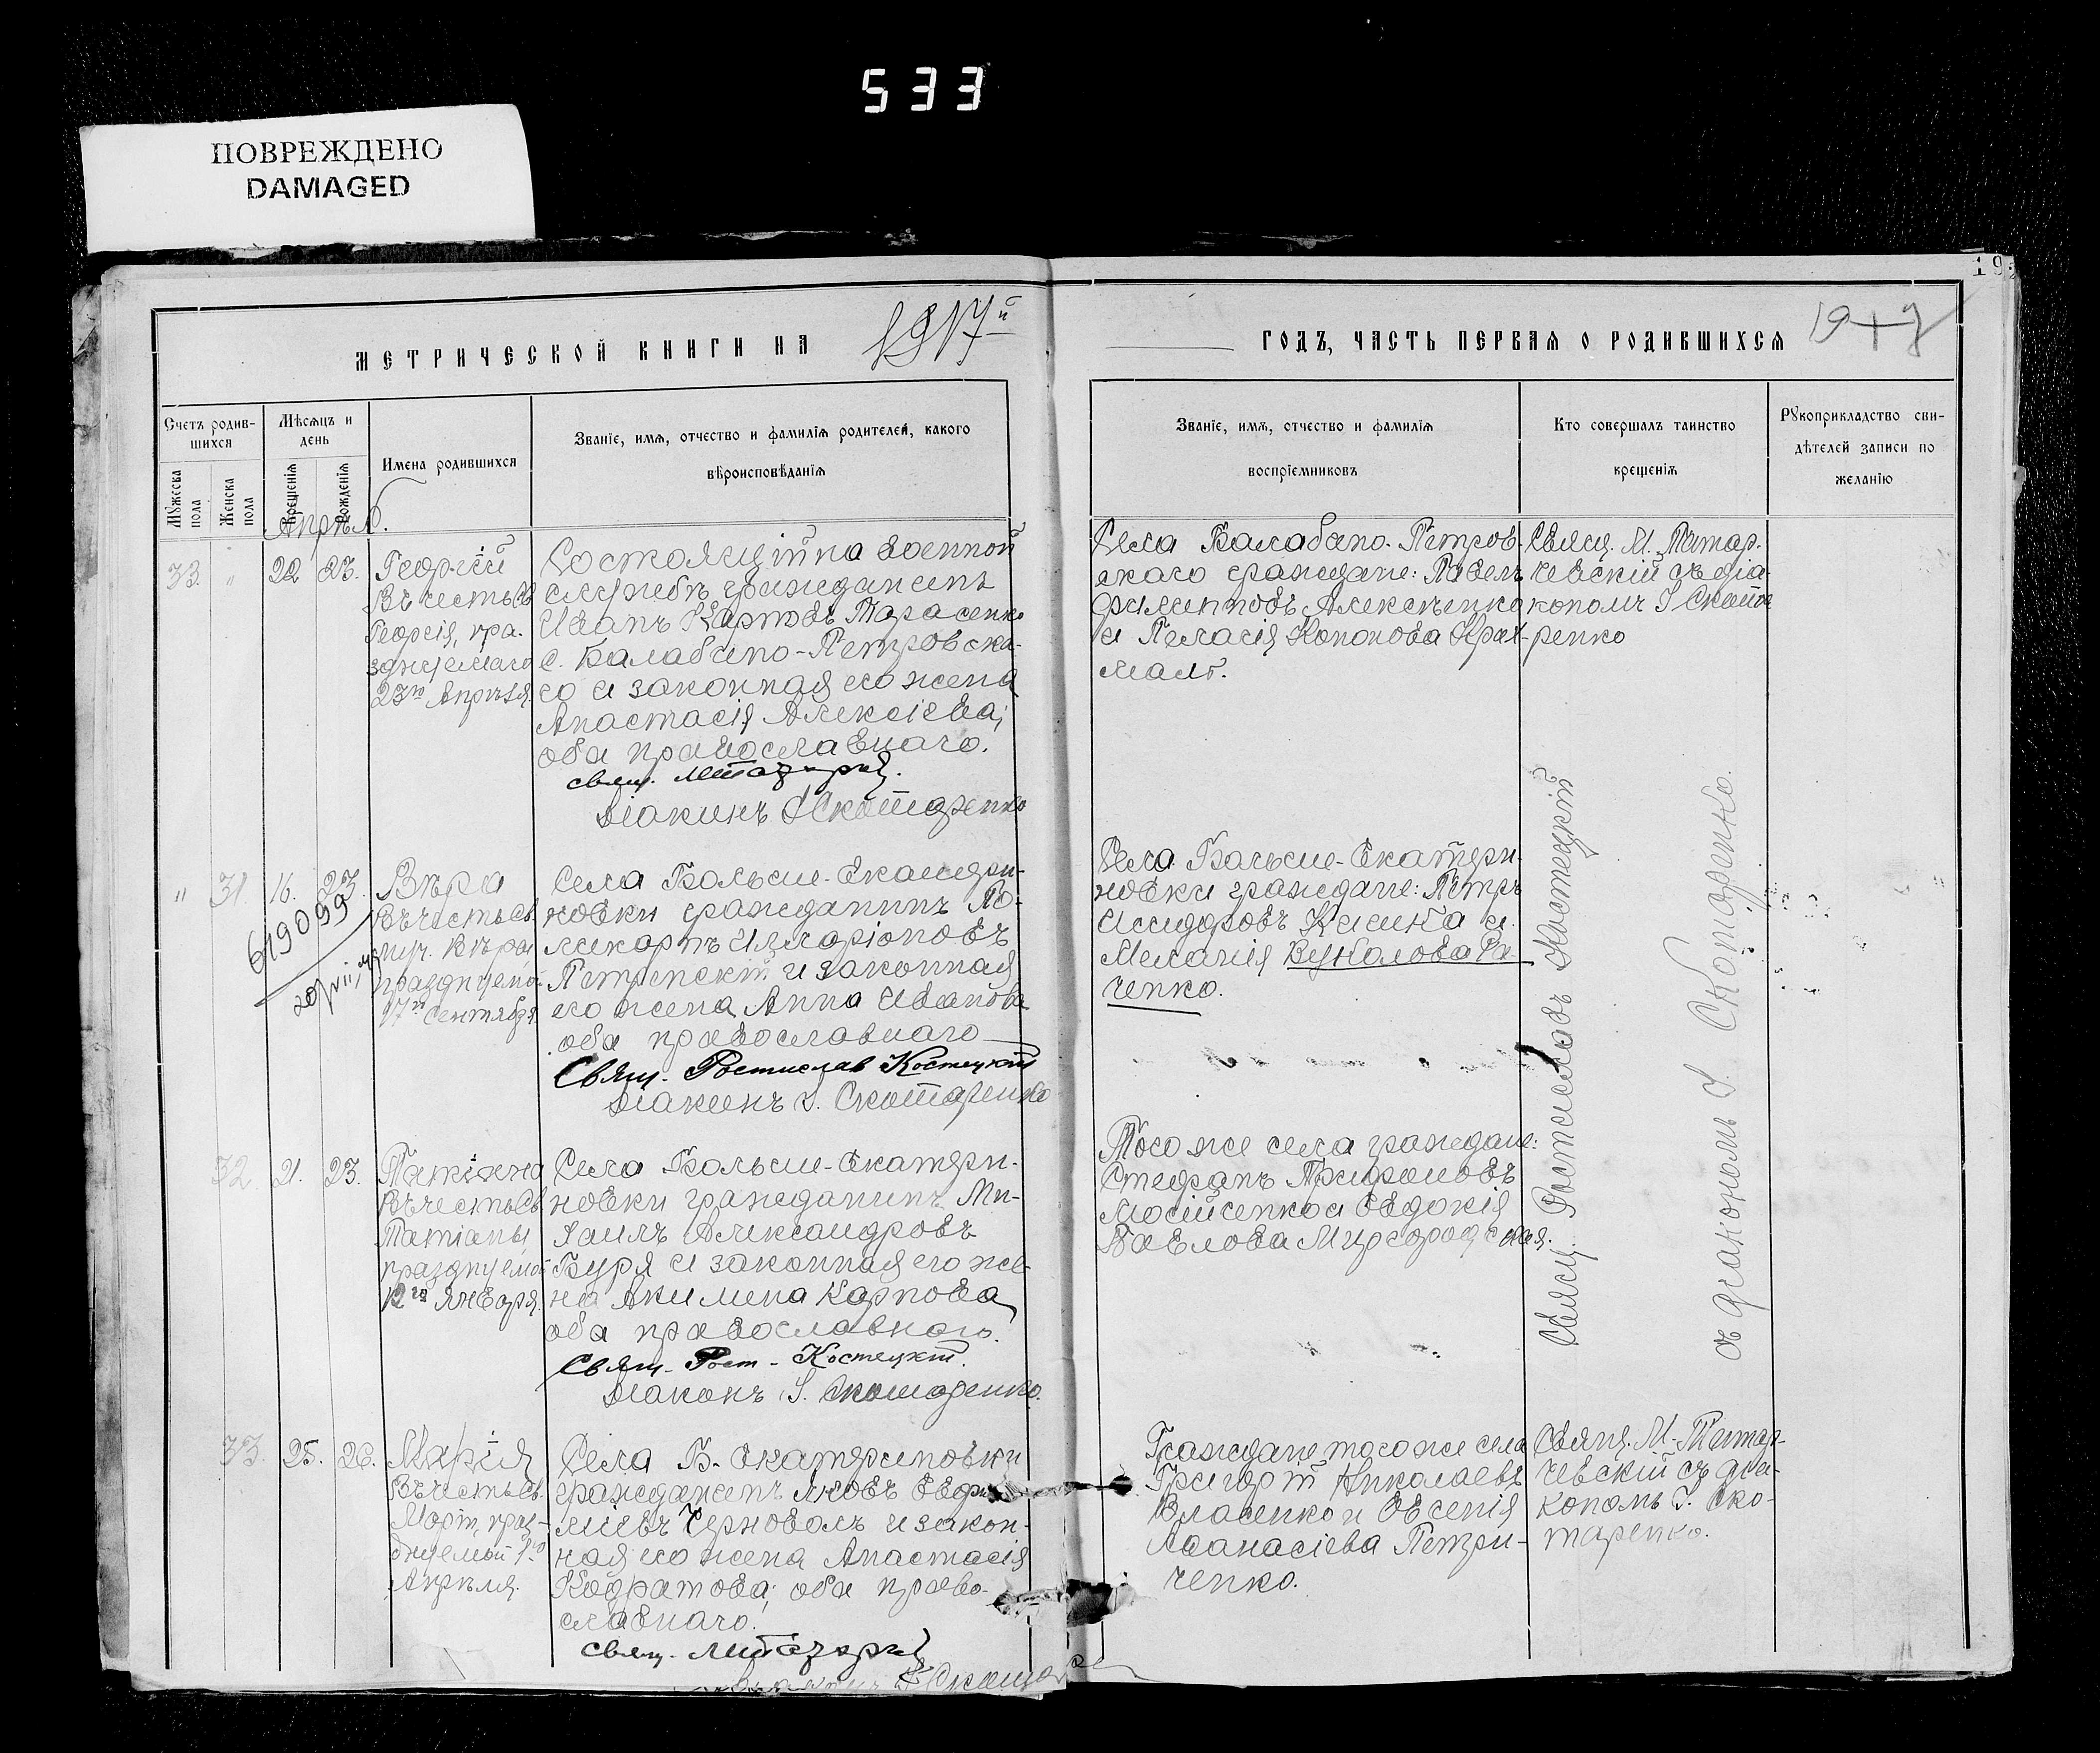 533
ПОВРЕЖДЕНО
DAMAGED
19
МЕТРИЧЕСКОЙ КНИГИ НА 1917й
ГОДЪ, ЧАСТЬ ПЕРВАЯ О РОДИВШИХСЯ
Счетъ родив-
шихся
Мужеска пола
Женска пола
Мѣсяцъ и
день
Крещенія
Рожденія
Имена родившихся
Званіе, имя, отчество и фамилія родителей, какого
вѣроисповѣданія
Званіе, имя, отчество и фамилія
воспріемниковъ
Кто совершалъ таинство
крещенія
Рукоприкладство сви-
дѣтелей записи по
желанію
Апрѣль.
33. " 22 23.
Георгій
Въ честь Св
Георгія, пра-
зднуемаго
23го Апрѣля.
Состоящій на военной
службѣ гражданинъ
Иванъ Карповъ Тарасенко
с. Балабино-Петровска-
го и законная его жена
Анастасія Алексіева;
оба православнаго.
свящ.
Діаконъ І Скотаренко
Села Балабино-Петров-
скаго граждане: Павелъ
Филипповъ Алексѣенко
и Пелагія Кононова Крах-
маль.
Свящ. М. Титар-
чевскій съ діа-
кономъ І Скота
ренко
" 31. 16. 23.
619099
Вѣра
Въ честь Св
муч. Вѣры
празднуемой
17го Сентября.
Села Больше-Екатери-
новки гражданинъ По-
ликарпъ Илларіоновъ
Петренскій и законная
его жена Анна Иванова
оба православнаго
Свящ. Ростислав Костецкій
Діаконъ І. Скотаренко
Села Больше-Екатери-
новки граждане: Петръ
Исидоровъ Книша и
Меланія Вукалова Ра-
ченко.
32. 21. 23.
Татіана
Въ честь Св
Татіаны
празднуемой
12го Января.
Села Больше-Екатери-
новки гражданинъ Ми-
хаилъ Александровъ
Буря и законная его же-
на Акилина Карпова
оба православнаго.
Свящ. Рост. Костецкій.
Діаконъ І. Скотаренко.
Того же села граждане:
Стефанъ Трифоновъ
Мосійченко и Евдокія
Павлова Миргородская.
Свящ. Ростиславъ Костецкій
съ діакономъ І. Скотаренко.
33. 25. 26.
Марія
Въ честь Св.
Маріи, праз-
днуемой 1го
Апрѣля.
Села Б. Екатериновки
гражданинъ Яковъ Евфи
міевъ Черноволъ и закон-
ная его жена Анастасія
Кодратова; оба право-
славнаго.
свящ.
Граждане того же села
Григорій Николаевъ
Власенко и Евгенія
Аѳанасіева Петри-
ченко.
Свящ. М. Титар-
чевскій съ діа-
кономъ І. Ско-
таренко.